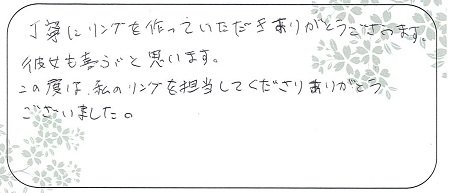 丁寧にリングを作っていただきありがとうございます。
彼女も喜ぶと思います。
この度は、私のリングを担当してくださりありがとう
ございました。